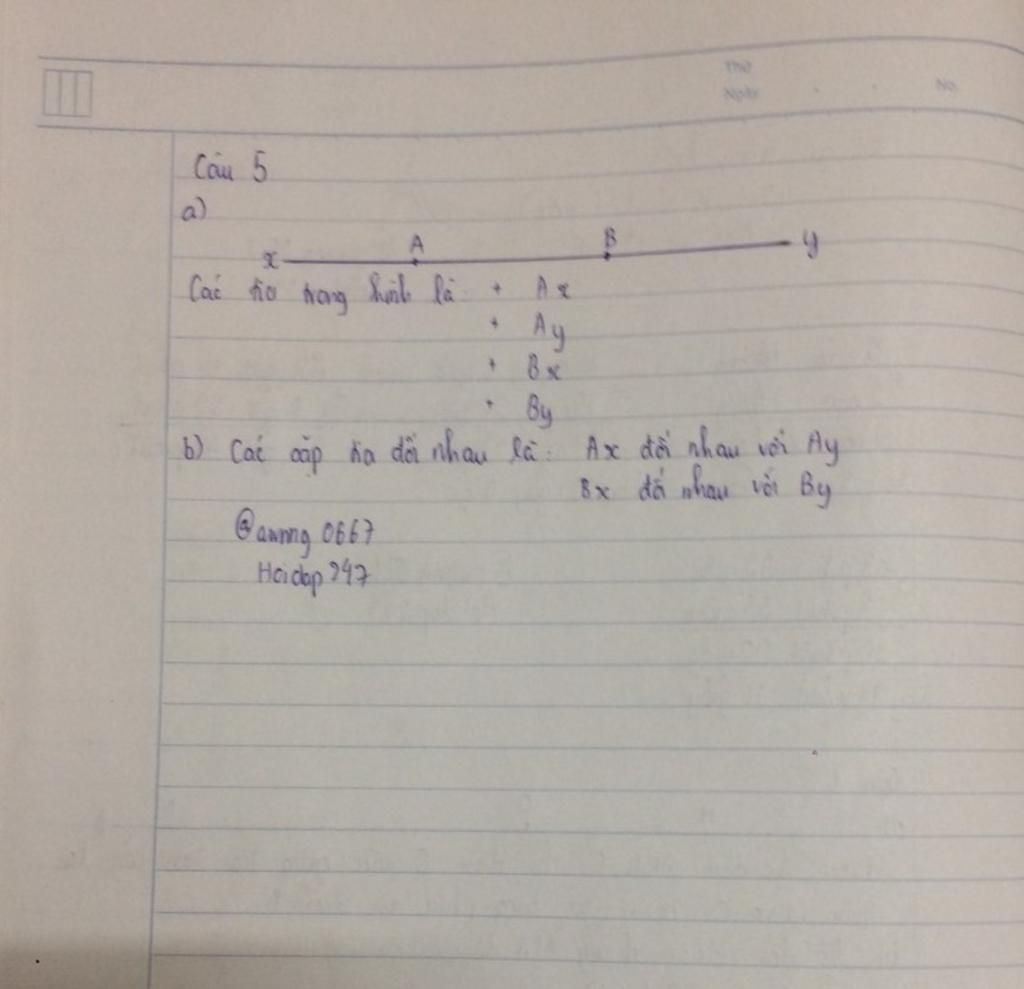 Thứ
Ngày No.
Câu 5
a)
x A B y
Các tia trong hình là: + Ax
+ Ay
+ Bx
+ By
b) Các cặp tia đối nhau là: Ax đối nhau với Ay
Bx đối nhau với By
@awnng 0667
Hoidap 247